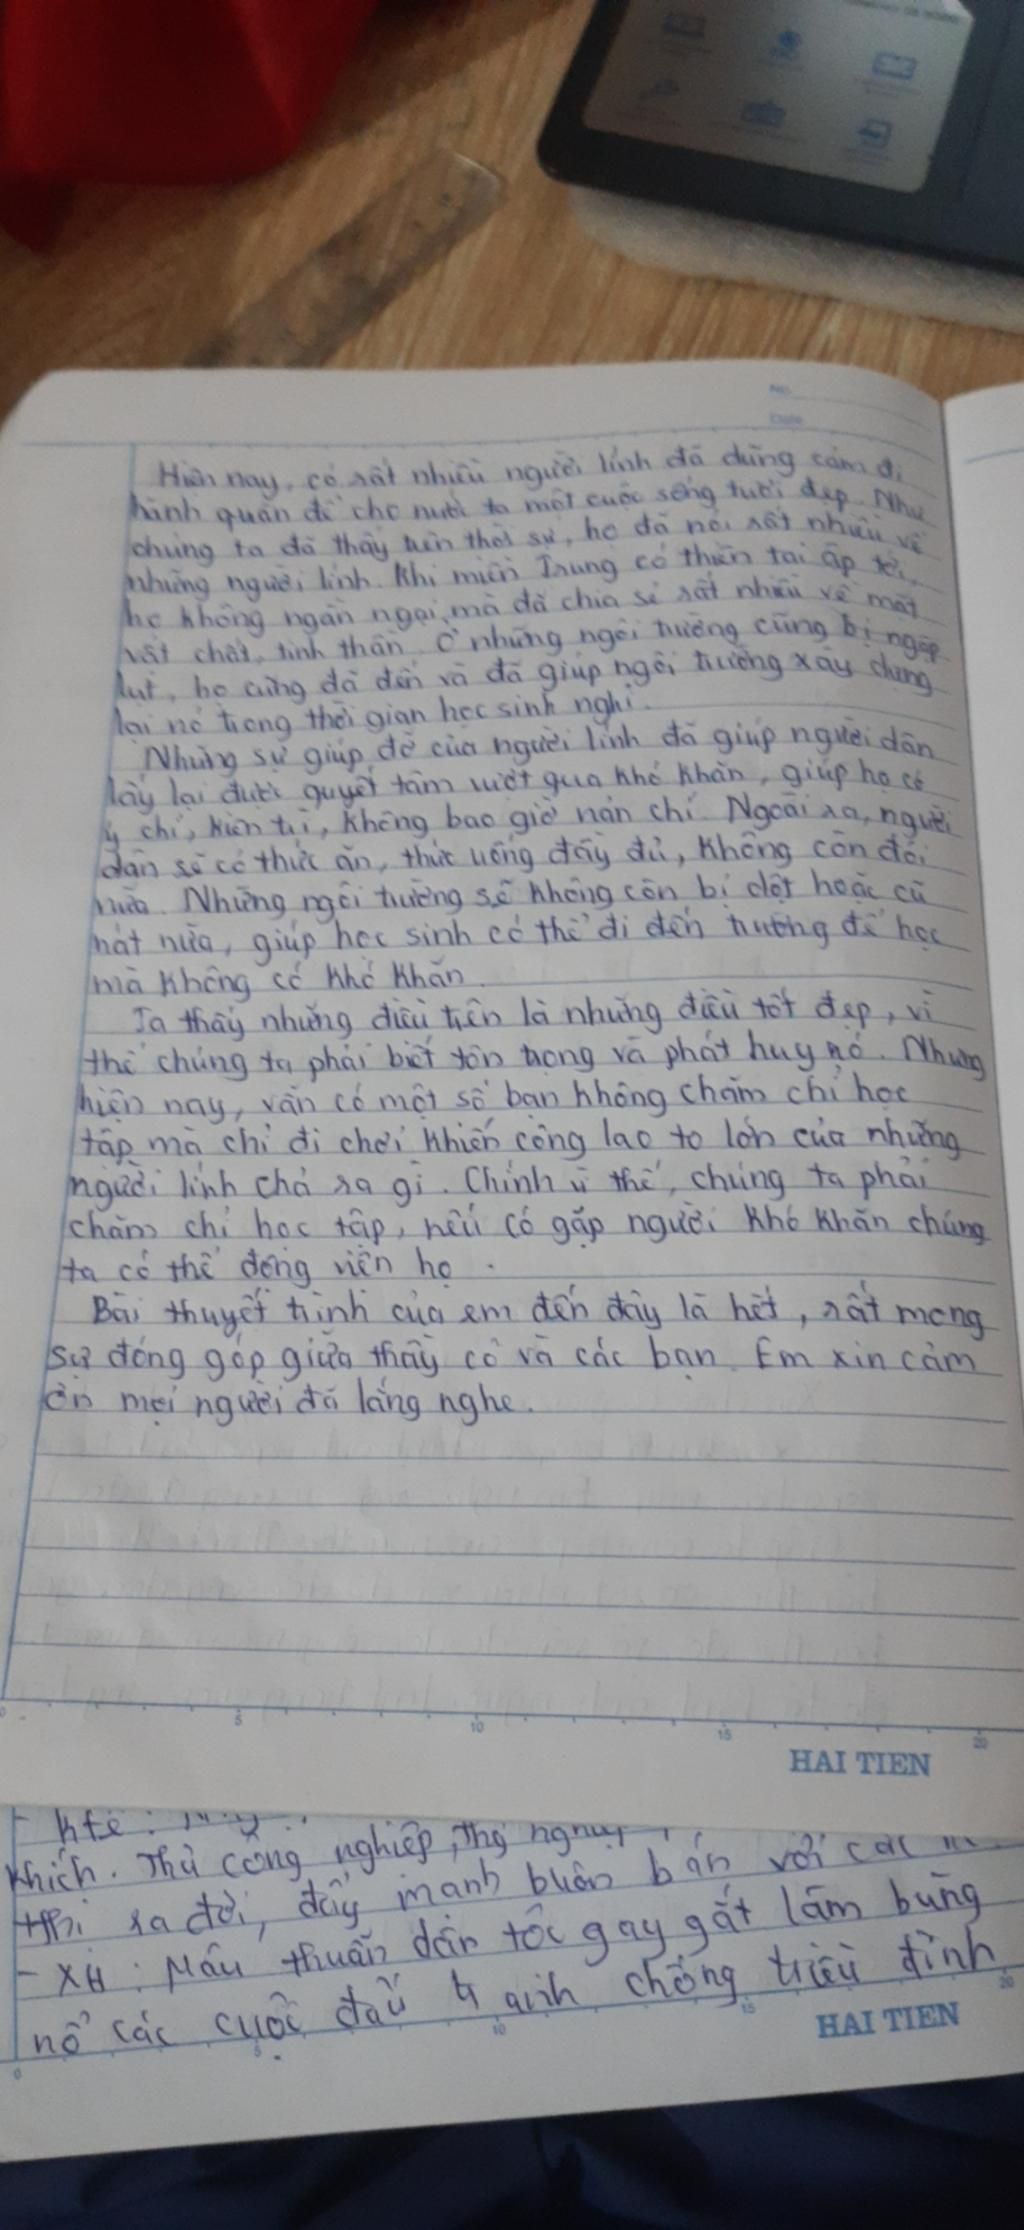 No.
Date
Hiện nay, có rất nhiều người lính đã dũng cảm đi
hành quân để cho nước ta một cuộc sống tươi đẹp. Như
chúng ta đã thấy trên thời sự, họ đã nói rất nhiều về
những người lính. Khi miền Trung có thiên tai ập tới,
họ không ngần ngại mà đã chia sẻ rất nhiều về mặt
vật chất, tinh thần. Ở những ngôi trường cũng bị ngập
lụt, họ cũng đã đến và đã giúp ngôi trường xây dựng
lại nó trong thời gian học sinh nghỉ.
Những sự giúp đỡ của người lính đã giúp người dân
lấy lại được quyết tâm vượt qua khó khăn, giúp họ có
ý chí, kiên trì, không bao giờ nản chí. Ngoài ra, người
dân sẽ có thức ăn, thức uống đầy đủ, không còn đói
nữa. Những ngôi trường sẽ không còn bị dột hoặc cũ
nát nữa, giúp học sinh có thể đi đến trường để học
mà không có khó khăn.
Ta thấy những điều trên là những điều tốt đẹp, vì
thế chúng ta phải biết tôn trọng và phát huy nó. Nhưng
hiện nay, vẫn có một số bạn không chăm chỉ học
tập mà chỉ đi chơi khiến công lao to lớn của những
người lính chả ra gì. Chính vì thế, chúng ta phải
chăm chỉ học tập, nếu có gặp người khó khăn chúng
ta có thể động viên họ.
Bài thuyết trình của em đến đây là hết, rất mong
sự đóng góp giữa thầy cô và các bạn. Em xin cảm
ơn mọi người đã lắng nghe.
0 5 10 15 20
HAI TIEN
- Kte:
khích. Thủ công nghiệp,
thị ra đời, đẩy mạnh buôn bán với các
- XH: Mâu thuẫn dân tộc gay gắt làm bùng
nổ các cuộc đấu chống triều đình
0 5 10 15 20
HAI TIEN